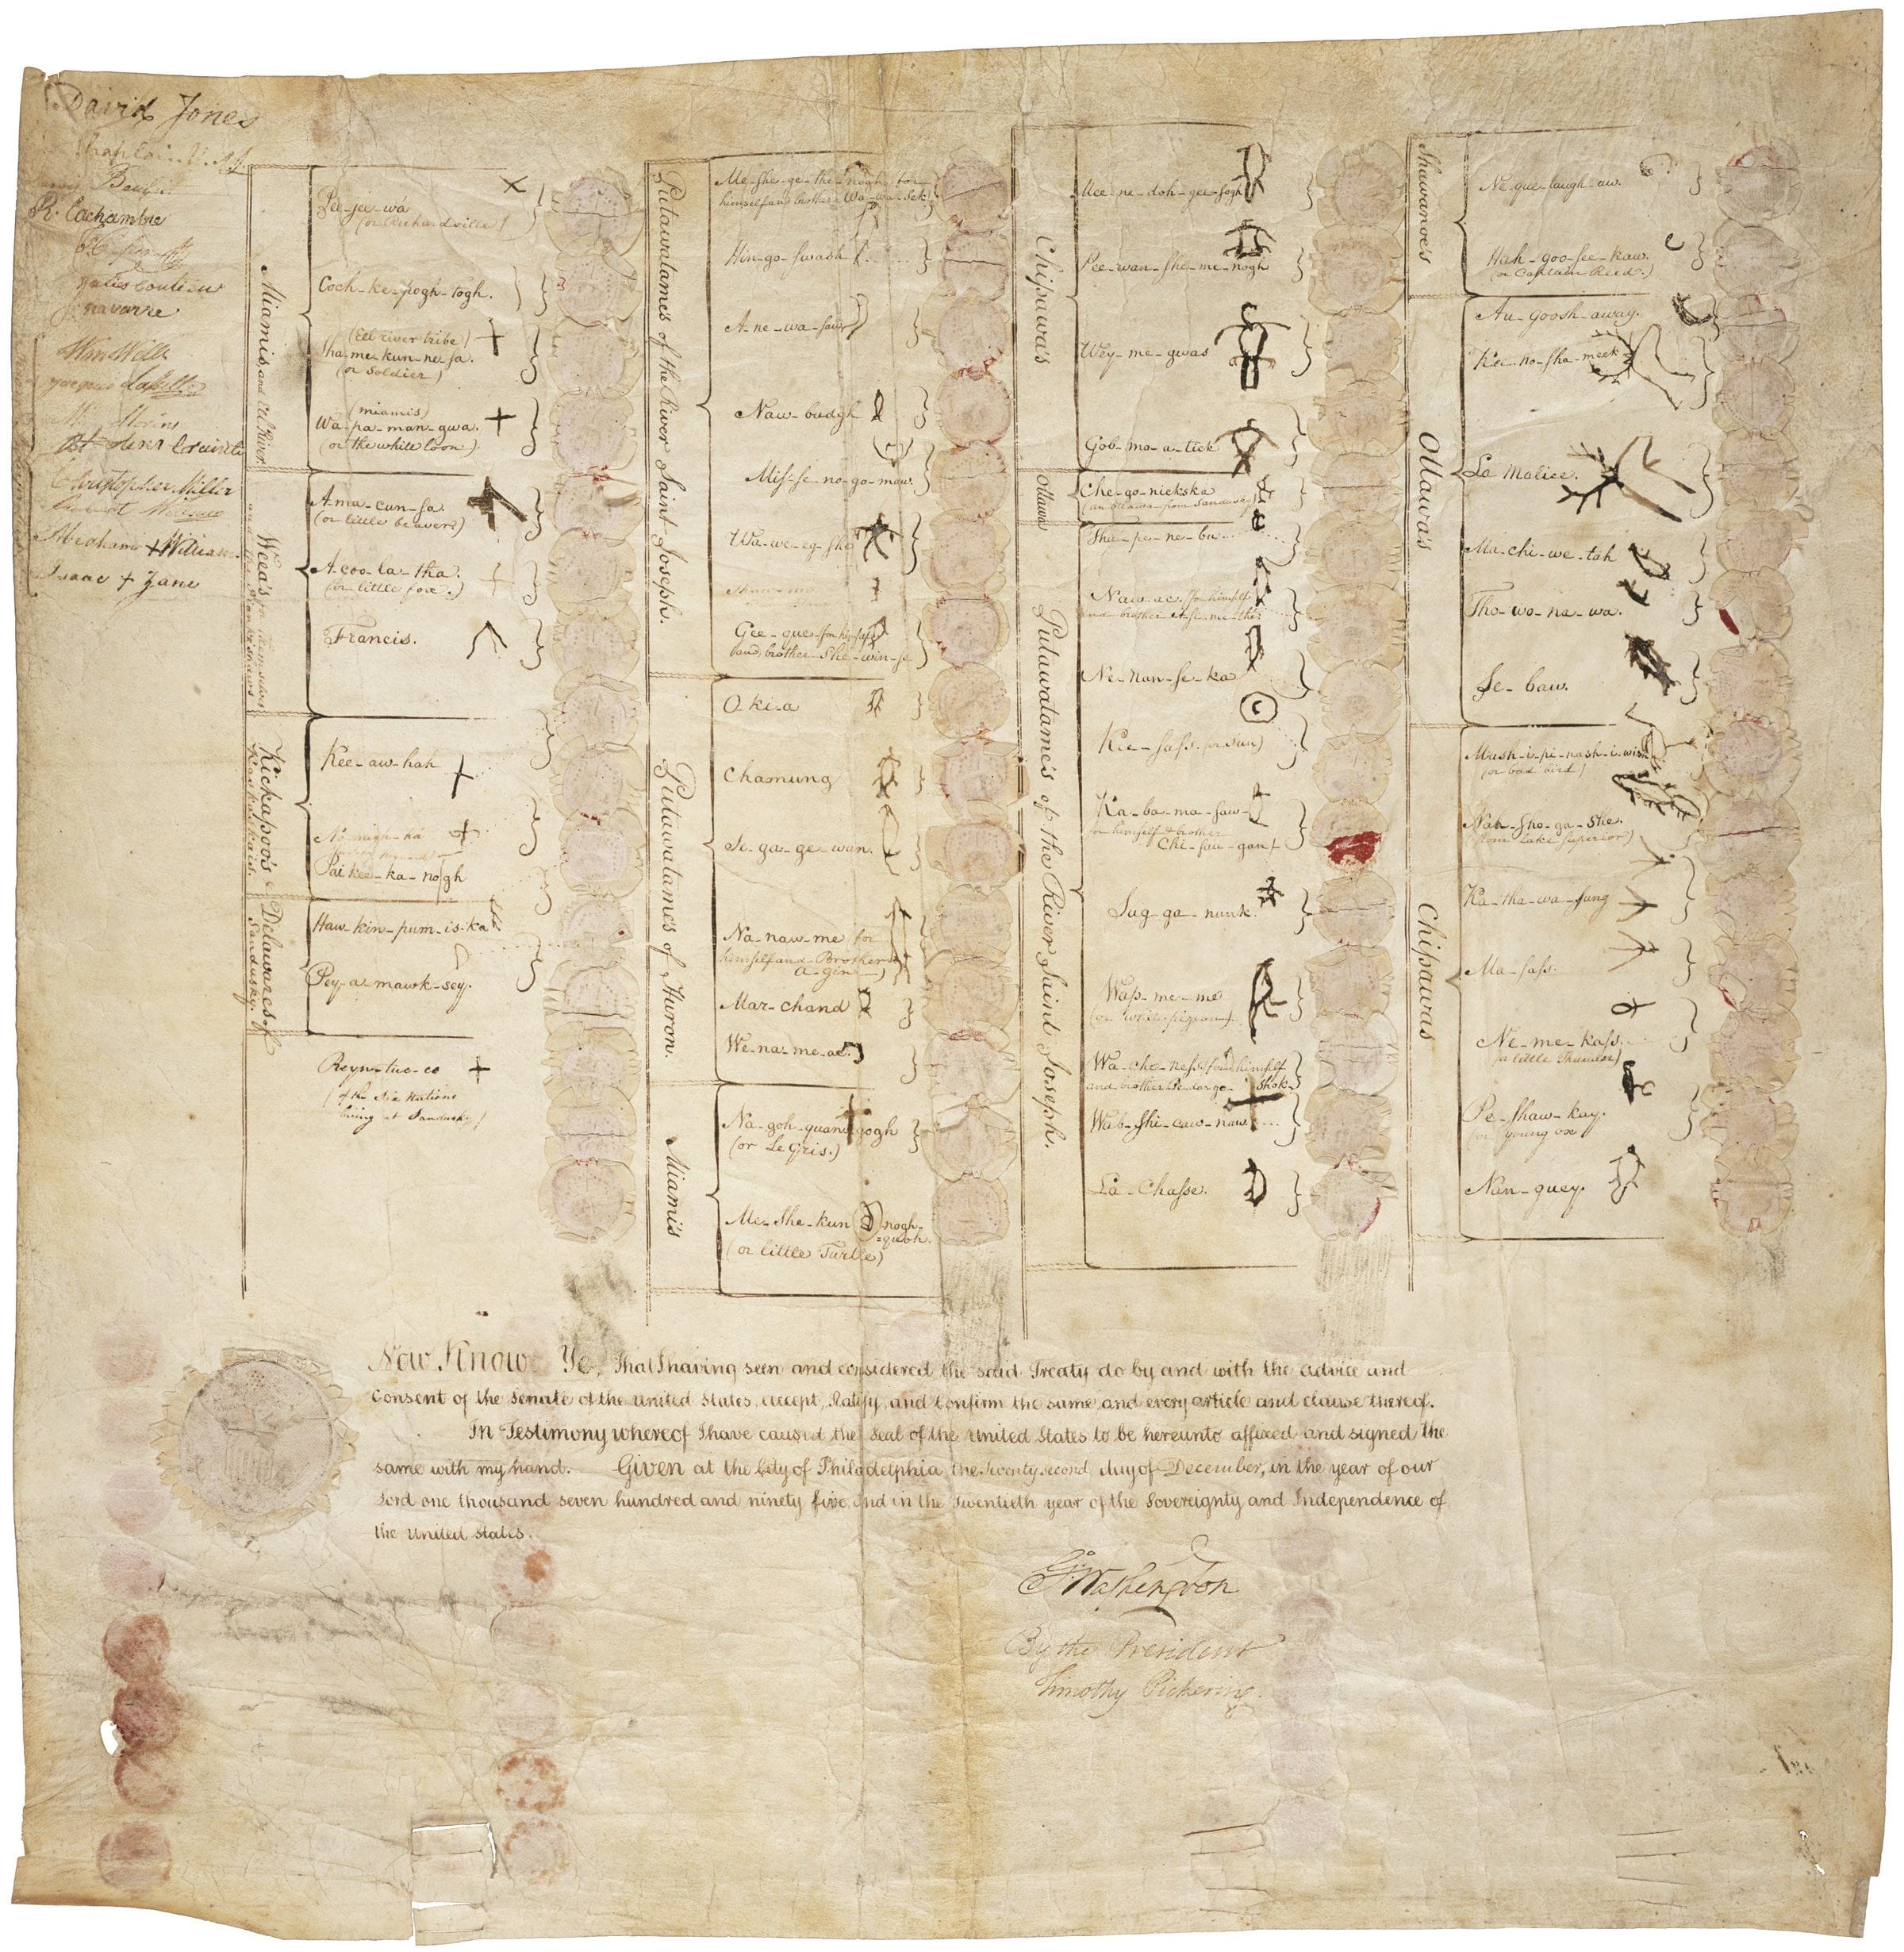 David Jones
R. Lachambre
Navarre
Wm Wells
Christopher Miller
Abraham + Williams
Isaac + Zane
Miamis, and Eel River
Pee-jee-wa
(or Richardville)
Coch-ke-pogh-togh.
(Eel river tribe)
Sha-me-kun-ne-sa.
(or Soldier)
(miamis)
Wa-pa-man-gwa.
(or the white loon)
Weea's for themselves
and the Piankishaws
Ama-cun-sa.
(or little beaver)
A-coo-la-tha.
(or little fox.)
Francis.
Kickapoo's &
Kaskaskias.
Kee-aw-hah
Pai kee-ka-nogh
Delawares of
Sandusky.
Haw-kin-pum-is-ka
Pey-a-mawk-sey.
Reyn-tue-co
(of the Six Nations
living at Sandusky)
Putawatames of the River Saint Joseph.
Me-she-ge-the-nogh, for
himself and brother Wa-wa-sek
Hin-go-swash
A-ne-wa-saw
Naw-budgh
Mis-se-no-go-maw.
Wa-we-eg-she
Gee-que-for himself
and brother She-win-se
Putawatames of Huron.
O-ki-a
Chamung
Se-ga-ge-wan.
Na-naw-me for
himself and Brother
A-gin
Mar-chand
We-na-me-ac
Miamis
Na-goh-quan-gogh
(or Le Gris.)
Me-she-kun nogh-
=quoh.
(or little Turtle)
Chipawa's
Mee-ne-doh-gee-sogh
Pee-wan-she-me-nogh
Wey-me-gwas
Gob-mo-a-tick
Ottawa
Che-go-nickska
(an Ottawa from Sandusky)
Putawatame's of the River Saint Joseph.
Thu-pe-ne-bu...
Naw-ac. for himself
and brother A-se-me-the
Ne-nan-se-ka
Kee-sass. or Sun)
Ka-ba-ma-saw-
for himself & brother
Chi-sau-gan
Sug-ga-nunk.
Wap-me-me
(or white pigeon).
Wa-che-ness for himself
and brother Pe-da-go-shok
Wab-shi-caw-naw...
La-Chasse.
Shawanoe's
Ne-que-taugh-aw.
Hah-goo-see-kaw.
or Captain Reed.)
Ottawa's
Au-goosh-away.
Kee-no-sha-meek
La Malice.
Ma-chi-we-tah
Tho-wo-na-wa.
Se-baw.
Chipawas
Mash-i-pi-nash-i-wish
(or bad bird)
Nah-sho-ga-she.
(from Lake Superior)
Ka-tha-wa-sung
Ma-sass.
Ne-me-kass.
or little Thunder)
Pe-shaw-kay.
(or young ox
Nan-guey.
Now Know Ye, That I having seen and considered the said Treaty do by and with the advice and
Consent of the Senate of the United States, accept, Ratify, and Confirm the same and every article and clause thereof.
In Testimony whereof I have caused the Seal of the United States to be hereunto affixed and signed the
same with my hand. Given at the City of Philadelphia the Twenty second day of December, in the year of our
Lord one thousand seven hundred and ninety five, and in the Twentieth year of the Sovereignty and Independence of
the United States.
G. Washington
By the President
Timothy Pickering.